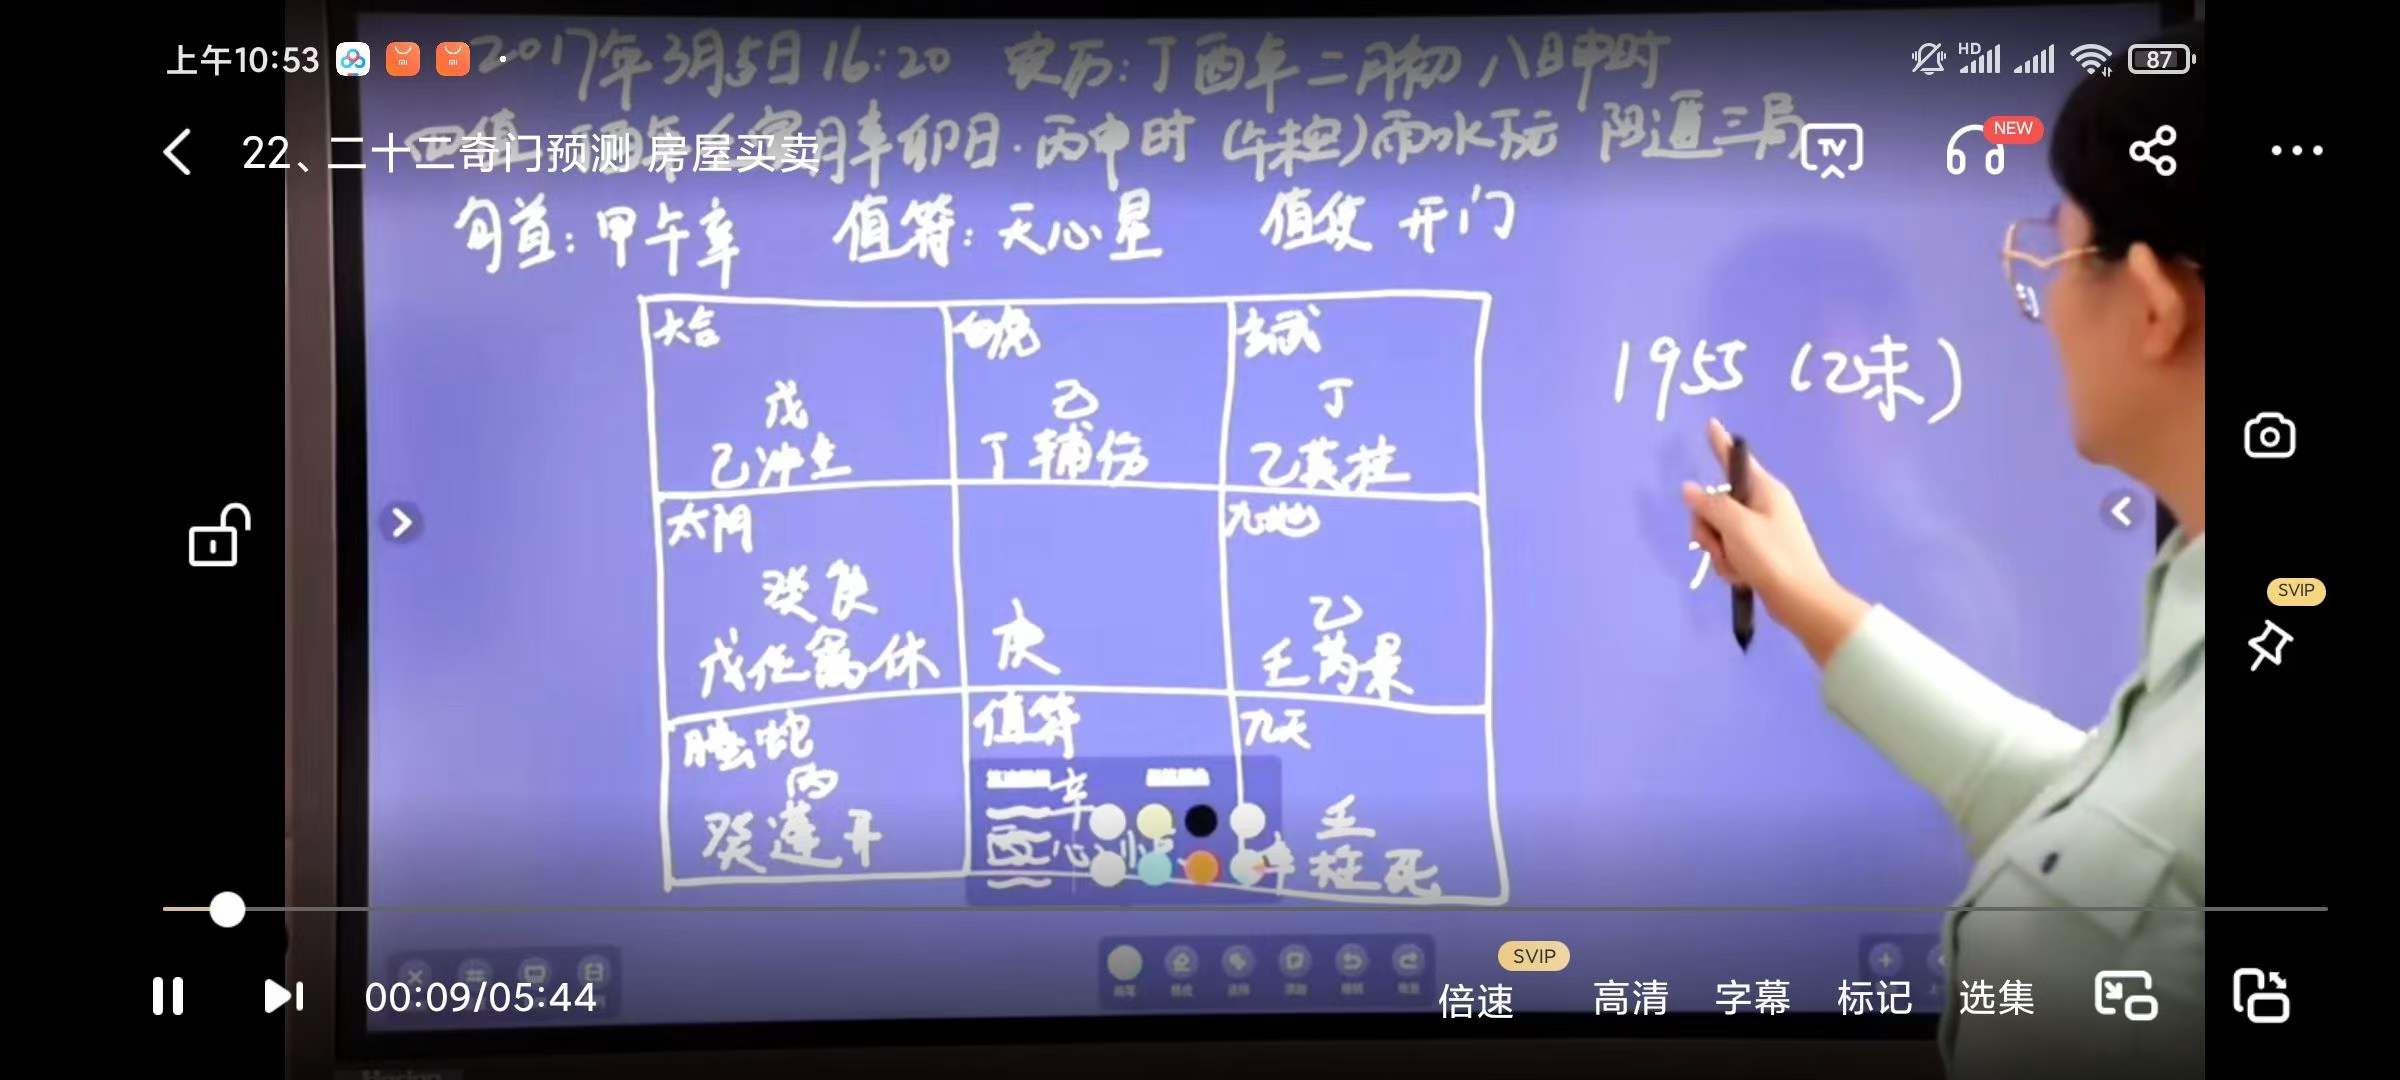 上午10:53
HD
87
2017年3月5日 16:20 农历:丁酉年 二月初八日申时
22、二十二奇门预测 房屋买卖
月辛卯日·丙申时 雨水下元 阴遁三局
TV
NEW
旬首:甲午辛 值符:天心星 值使 开门
六合 白虎 玄武
戊 己 丁
己冲生 丁辅伤 乙英杜
1955 (乙未)
太阴 九地
癸庚 乙
戊任禽休 庚 壬芮景
螣蛇 值符 九天
丙 辛 壬
癸蓬开 心 辛柱死
SVIP
00:09/05:44
SVIP
倍速 高清 字幕 标记 选集